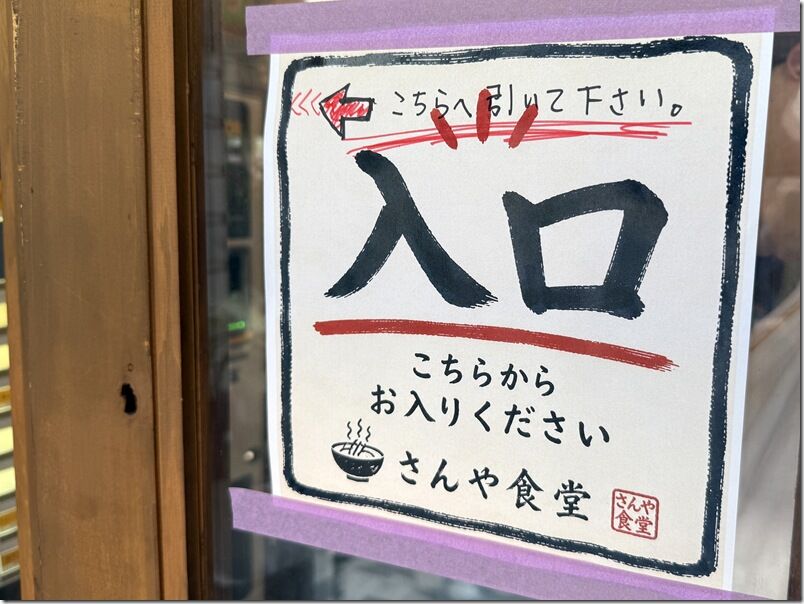 こちらへ引いて下さい。
入口
こちらから
お入りください
さんや食堂
さんや
食堂